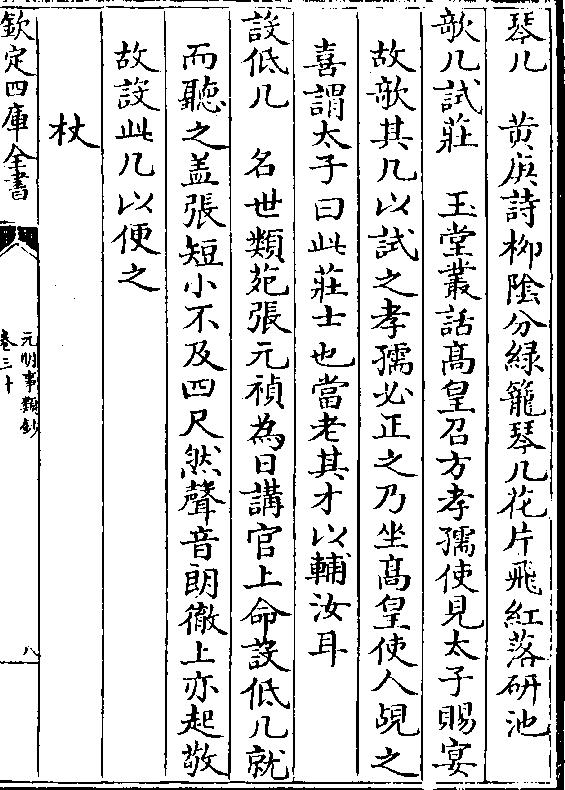 琴几　黄庚詩柳隂分緑籠琴几花片飛紅落硏池
欹几試莊　玉堂叢話髙皇召方孝孺使見太子賜宴
故欹其几以試之孝孺必正之乃坐髙皇使人覘之
喜謂太子曰此莊士也當老其才以輔汝耳
設低几　名世類苑張元禎為日講官上命設低几就
而聽之盖張短小不及四尺然聲音朗徹上亦起敬
故設此几以便之
杖
欽定四庫全書
元明事類鈔
卷三十
八